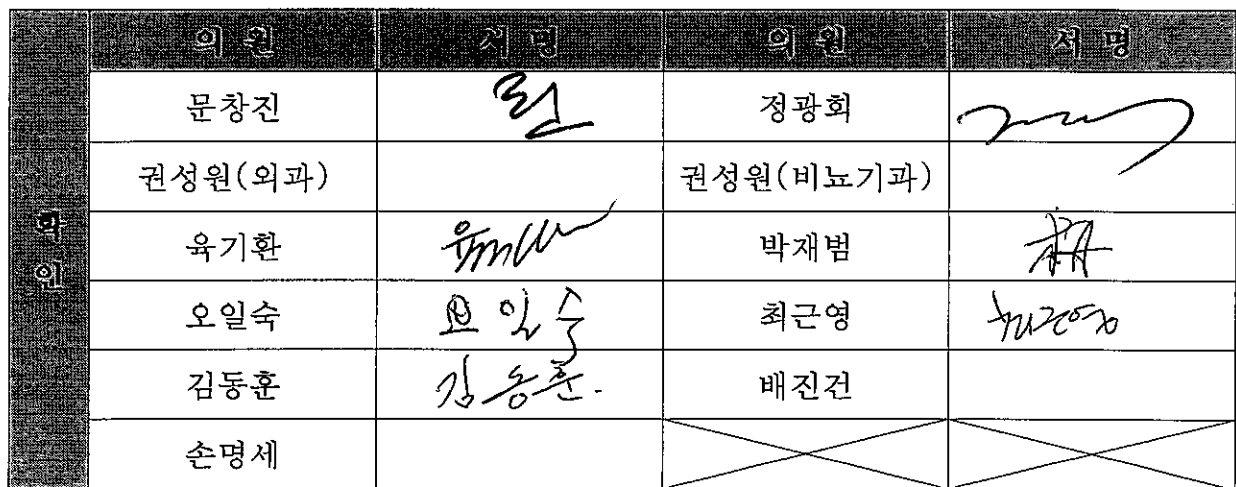 의 원 서 명 의 원 서 명
문창진 정광회
권성원(외과) 권성원(비뇨기과)
확인
육기환 박재범
오일숙 오일숙 최근영 최근영
김동훈 김동훈. 배진건
손명세